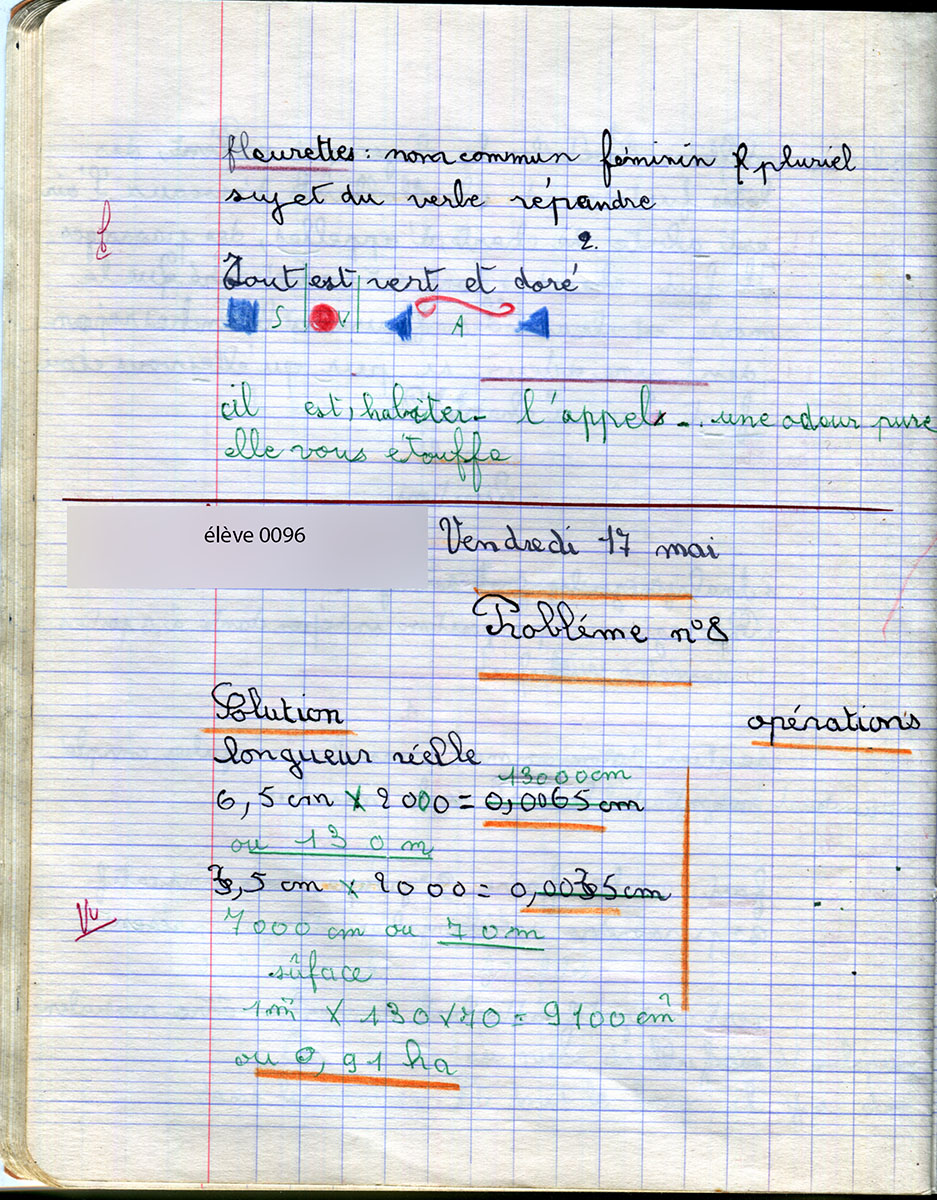 fleurettes : nom commun féminin pluriel
sujet du verbe répandre
2.
Tout est vert et doré
S V A
cil est, habiter - l'appels - .. une odeur pure
elle vous étouffe
élève 0096
Vendredi 17 mai
Probléme n°8
Solution
opérations
longueur réelle
13000cm
6,5 cm x 2000 = 0,0065 cm
ou 130 m
3,5 cm x 2000 = 0,0035 cm
Vu
7000 cm ou 70 m
sûface
1m² x 130 x 70 = 9100 cm²
ou 0,91 ha